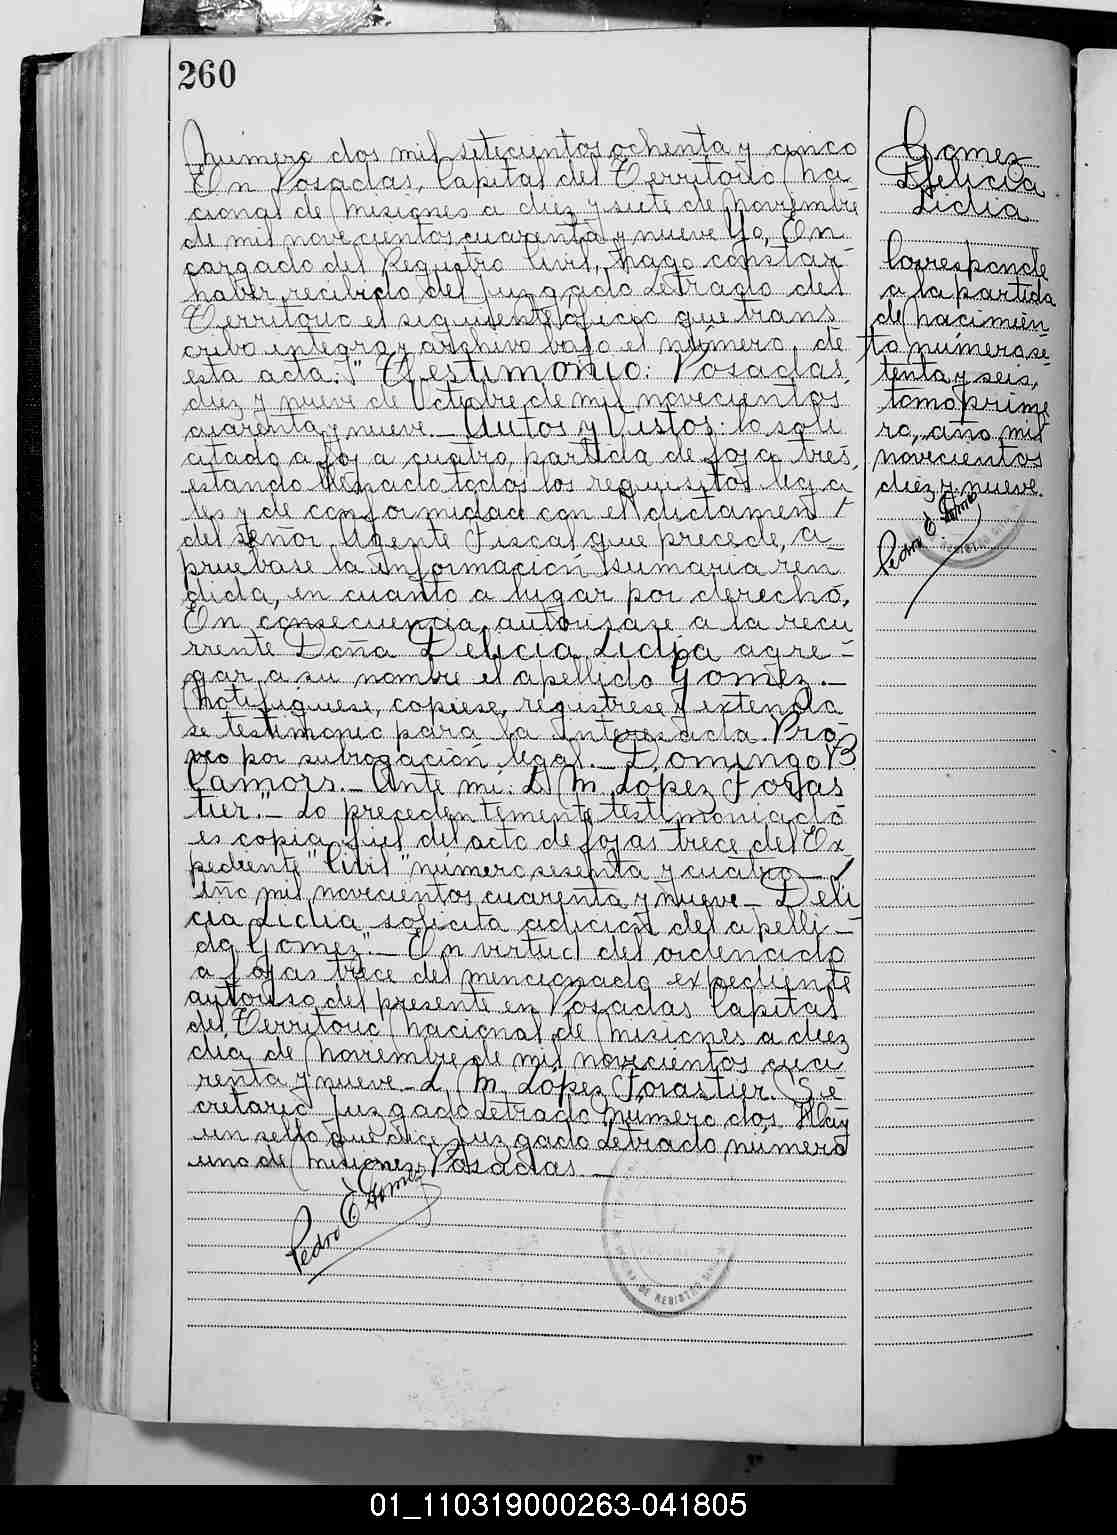 260
Numero dos mil setecientos ochenta y cinco
En Posadas, Capital del Territorio Na-
cional de Misiones a diez y siete de Noviembre
de mil novecientos cuarenta y nueve Yo, En
cargado del Registro Civil, hago constar
haber recibido del Juzgado Letrado del
Territorio el siguiente oficio que trans
cribo integro y archivo bajo el número de
esta acta: "Testimonio: Posadas,
diez y nueve de Octubre de mil novecientos
cuarenta y nueve.- Autos y Vistos: lo soli
citado a foja cuatro, partida de foja tres,
estando llenado todos los requisitos lega
les y de conformidad con el dictamen
del señor Agente Fiscal que precede, a-
pruebase la información sumaria ren
dida, en cuanto a lugar por derecho.
En consecuencia autorisase a la recu
rrente Doña Delicia Lidia agre-
gar a su nombre el apellido Gomez.-
Notifiquese, copiese, registrese y extenda
se testimonio para la interesada. Pro-
veo por subrogación legal.- Domingo B.
Camors.- Ante mi: L. M. López Foras
tier."- Lo precedentemente testimoniado
es copia fiel del acto de fojas trece del Ex-
pediente "Civil" número sesenta y cuatro-
Año mil novecientos cuarenta y nueve- Deli
cia Lidia solicita adición del apelli-
do Gomez".- En virtud del ordenado
a fojas trece del mencionado expediente
autoriso del presente en Posadas Capital
del Territorio Nacional de Misiones a diez
dia de Noviembre de mil novecientos cua
renta y nueve- L. M. López Forastier. Se-
cretario Juzgado Letrado Número dos. Hay
un sello que dice Juzgado Letrado número
uno de Misiones Posadas.-
Pedro E. Gomez
DE REGISTRO CIVIL
Gomez
Delicia
Lidia
Corresponde
a la partida
de nacimien
to número se
tenta y seis,
tomo prime
ro, año mil
novecientos
diez y nueve.
Pedro E. Gomez
REGISTRO CIVIL
01_110319000263-041805